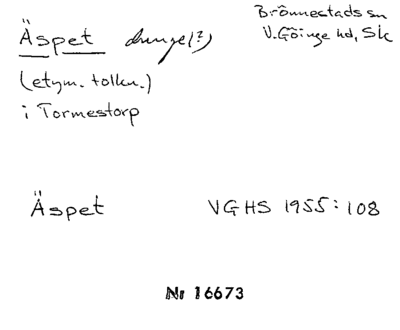 Äspet dunge(?)
Brönnestads sn
V. Göinge hd, Sk
(etym. tolkn.)
i Tormestorp
Äspet VGHS 1955:108
Nr 16673